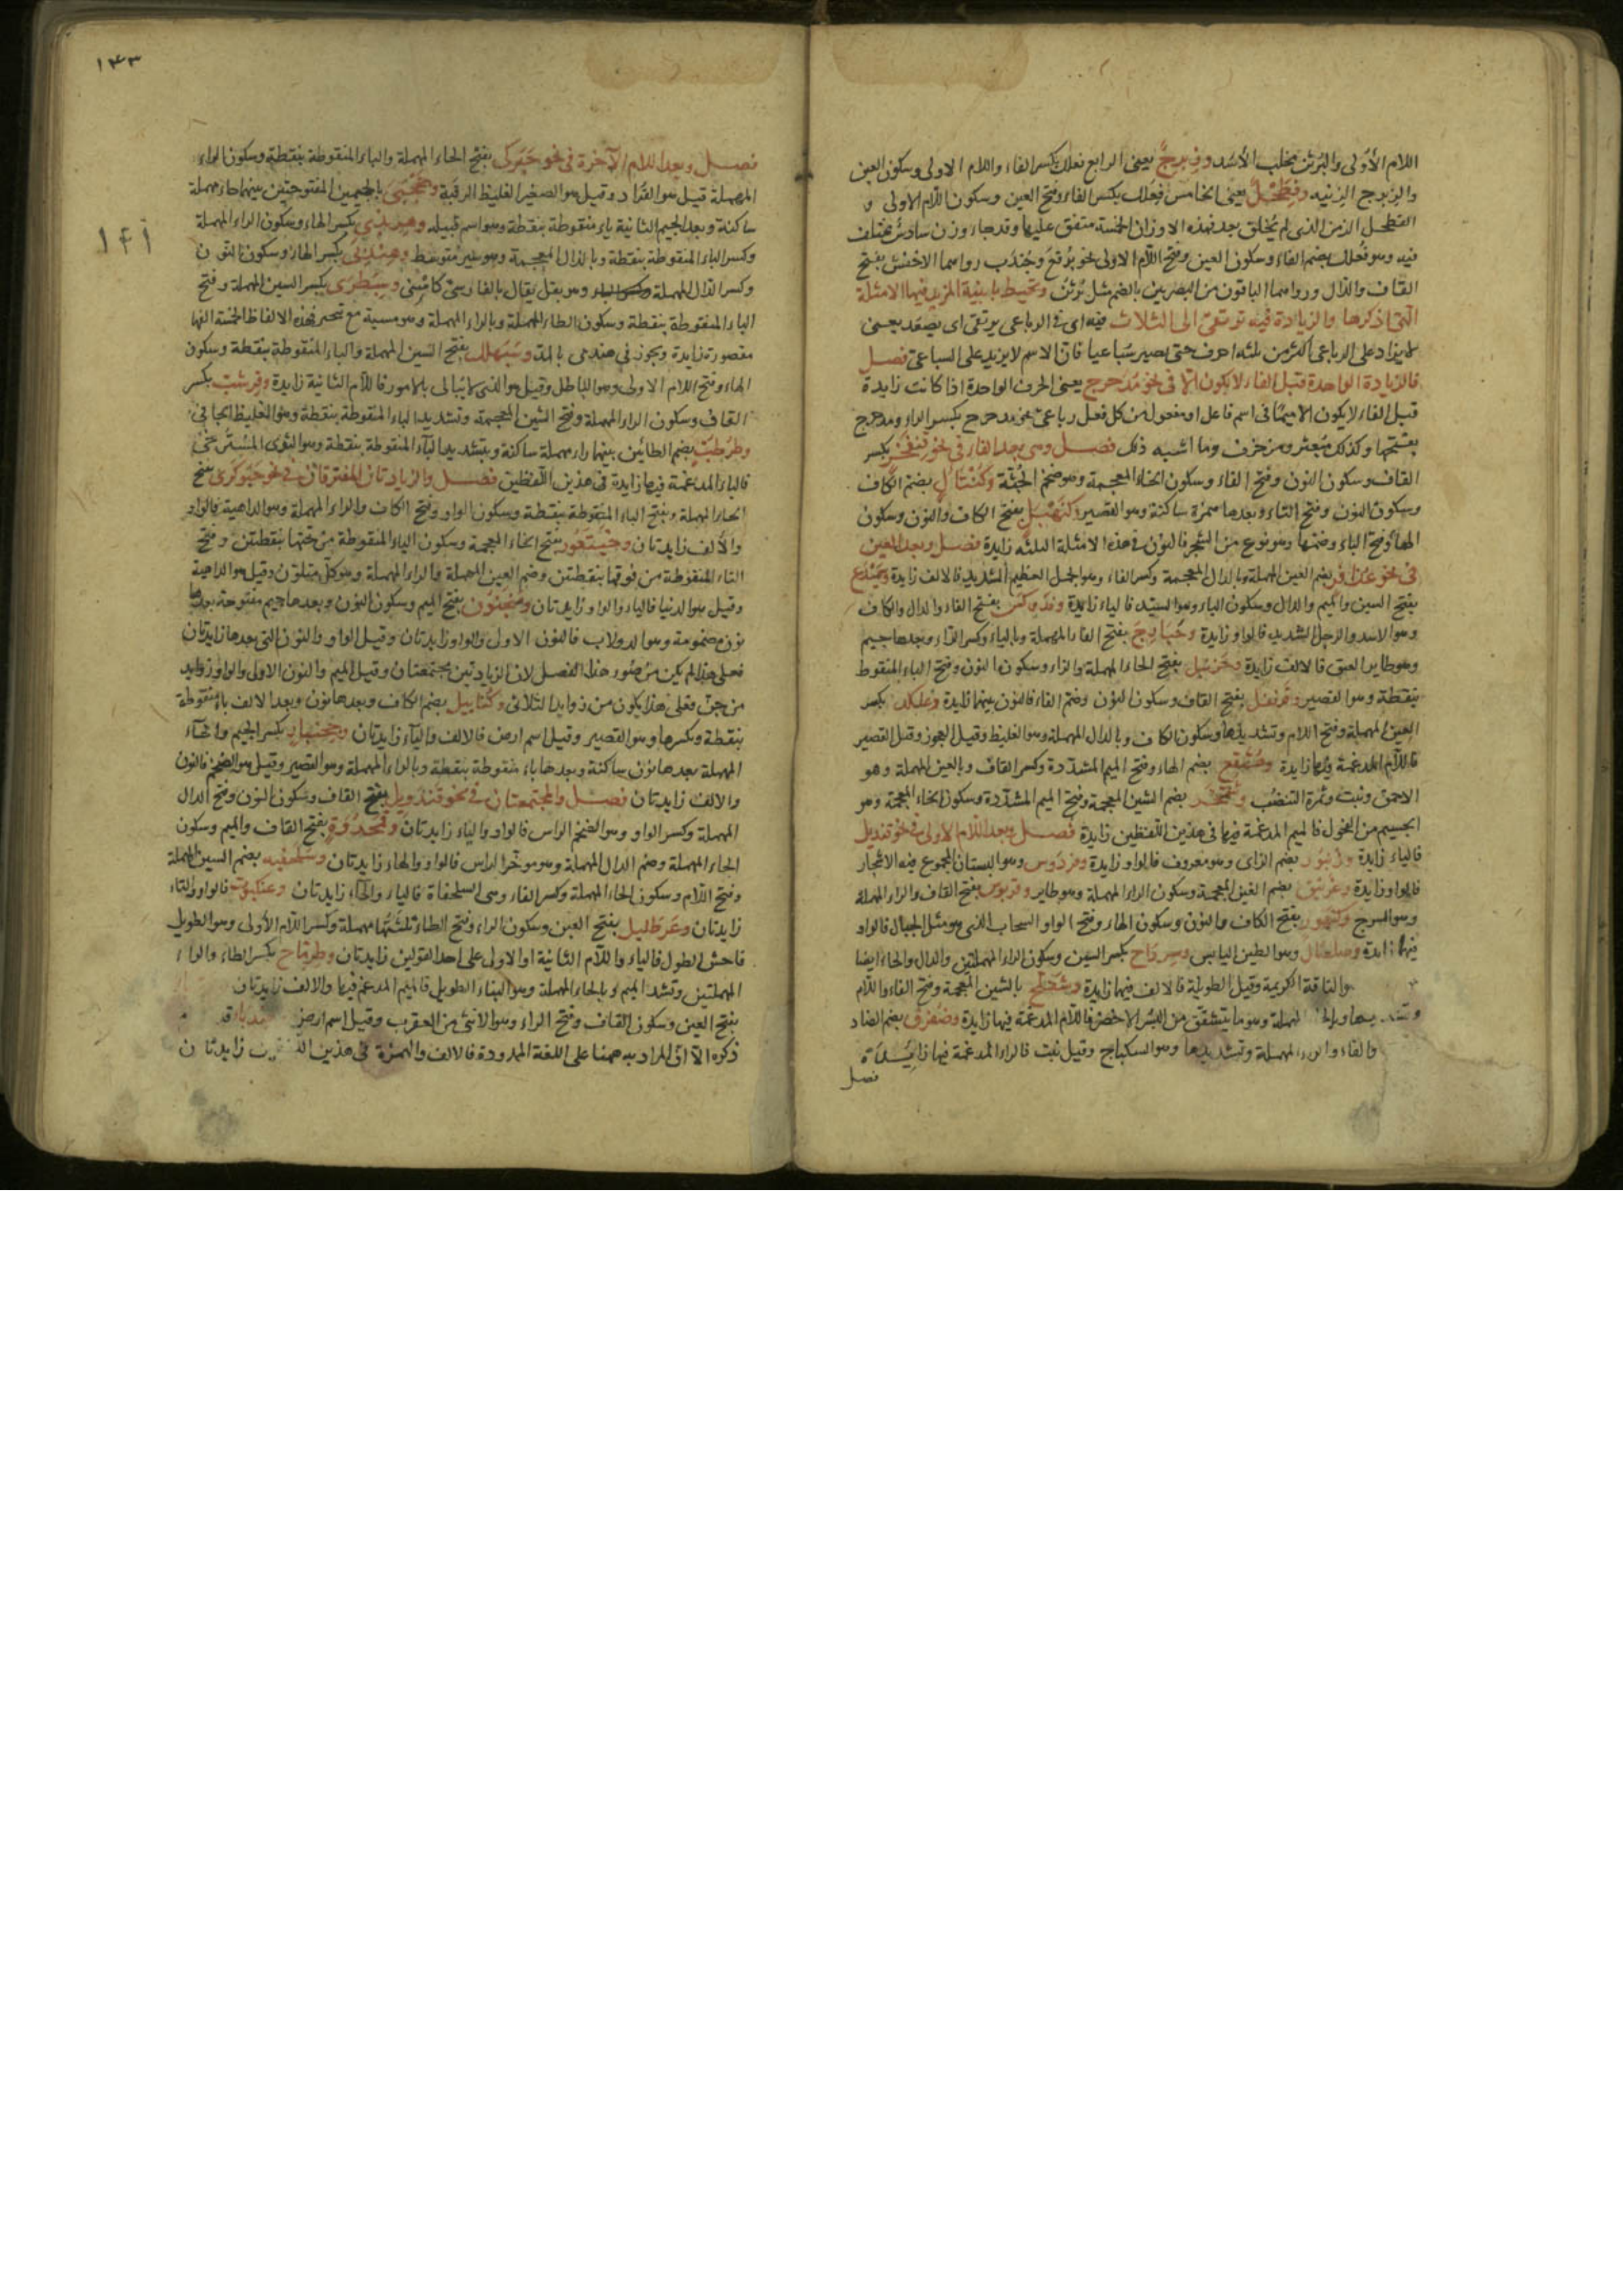 اللام الأولى والبرثن مخلب الأسد وزبرج يعنى الرابع فعلل بكسر الفاء واللام الاولى وسكون العين
والزبرج الزينة وفطحل يعنى الخامس فعلل بكسر الفاء وفتح العين وسكون اللام الاولى و
الفطحل الزمن الذى لم يخلق بعد فهذه الاوزان الخمسة متفق عليها وقد جاء وزن سادس مختلف
فيه وهو فعلل بضم الفاء وسكون العين وفتح اللام الاولى نحو برقع وجندب رواهما الاخفش بفتح
القاف والدال ورواهما الباقون من البصريين بالضم مثل برثن وتحيط بابنية المزيد فيها الامثلة
التى اذكرها والزيادة فيه ترتقى الى الثلاث فيه اى فى الرباعى يرتقى اى يصعد يعنى
لا يزاد على الرباعى اكثر من ثلثه احرف حتى يصير سباعيا فان الاسم لا يزيد على السباعى فصل
فالزيادة الواحدة قبل الفاء لا يكون الا فى نحو مدحرج يعنى الحرف الواحدة اذا كانت زايدة
قبل الفاء لا يكون الا ميما فى اسم فاعل او مفعول من كل فعل رباعى نحو مدحرج بكسر الراء ومدحرج
بفتحها وكذلك مبعثر ومزخرف وما اشبه ذلك فصل وهى بعد الفاء فى نحو قنفخر بكسر
القاف وسكون النون وفتح الفاء وسكون الخاء المعجمة وهو ضخم الجثة وكنتأل بضم الكاف
وسكون النون وفتح التاء وبعدها همزة ساكنة وهو القصير وكنهبل بفتح الكاف والنون وسكون
الهاء وفتح الباء وضمها وهو نوع من الشجر فالنون فى هذه الامثلة الثلثه زايدة فصل وبعد العين
فى نحو عذافر بضم العين المهملة وبالذال المعجمة وكسر الفاء وهو الجمل العظيم الشديد فالالف زايدة وسميدع
بفتح السين والميم والدال وسكون الياء وهو السيد فالياء زايدة وفدوكس بفتح الفاء والدال والكاف
وهو الاسد والرجل الشديد فالواو زايدة وحبارج بفتح الحاء المهملة وبالباء وكسر الراء وبعدها جيم
وهو طاير العبق فالالف زايدة وحزنبل بفتح الحاء المهملة والزاء وسكون النون وفتح الباء المنقوط
بنقطة وهو القصير وقرنفل بفتح القاف وسكون النون وضم الفاء فالنون بينها زايدة وعلكد بكسر
العين المهملة وفتح اللام وتشديدها وسكون الكاف وبالدال المهملة وهو الغليظ وقيل العجوز وقيل القصير
فاللام المدغمة فيها زايدة وهمقع بضم الهاء وفتح الميم المشددة وكسر القاف وبالعين المهملة وهو
الاحمق ونبت وثمرة التنضب وشمخر بضم الشين المعجمة وفتح الميم المشددة وسكون الخاء المعجمة وهو
الجسيم من الفحول فالميم المدغمة فيها فى هذين اللفظين زايدة فصل وبعد اللام الاولى فى نحو قنديل
فالياء زايدة وزنبور بضم الزاى وهو معروف فالواو زايدة وفردوس وهو البستان المجموع فيه الاشجار
فالواو زايدة وغرنيق بضم الغين المعجمة وسكون الراء المهملة وهو طاير وقربوس بفتح القاف والراء المهملة
وهو السرج وكنهور بفتح الكاف والنون وسكون الهاء وفتح الواو السحاب الذى هو مثل الجبال فالواو
فيها زايدة وصلصال وهو الطين اليابس وسرداح بكسر السين وسكون الراء المهملتين والدال والحاء ايضا
والناقة الكريمة وقيل الطويلة فالالف فيها زايدة وشفلح بالشين المعجمة وفتح الفاء واللام
المهملة وهو ما يتشقق من الاخضر فاللام المدغمة فيها زايدة وصفرق بضم الصاد
والفاء والراء المهملة وتشديدها وهو السكباج وقيل نبت فالراء المدغمة فيها زايدة
فصل
١٣٣
١٤١
فصل وبعد اللام الآخرة فى نحو حبركى بفتح الحاء المهملة والباء المنقوطة بنقطة وسكون الراء
المهملة قيل هو القراد وقيل هو الصغير الغليظ الرقبة وجحجبى بالجيمين المفتوحتين بينهما حاء مهملة
ساكنة وبعد الجيم الثانية باء منقوطة بنقطة وهو اسم قبيلة وهربذى بكسر الهاء وسكون الراء المهملة
وكسر الباء المنقوطة بنقطة وبالذال المعجمة وهو سير متوسط وهندبى بكسر الهاء وسكون النون
وكسر الدال المهملة وهو بقل يقال بالفارسى كاسنى وسبطرى بكسر السين المهملة وفتح
الباء المنقوطة بنقطة وسكون الطاء المهملة وبالراء المهملة وهو مشية مع تبختر فهذه الالفاظ الخمسة الفها
مقصورة زايدة ويجوز فى هندبى بالمد وسبهلل بفتح السين المهملة والباء المنقوطة بنقطة وسكون
الهاء وفتح اللام الاولى وهو الباطل وقيل هو الذى لا يبالى بالامور فاللام الثانية زايدة وقرشب بكسر
القاف وسكون الراء المهملة وفتح الشين المعجمة وتشديد الباء المنقوطة بنقطة وهو الغليظ الجافى
وطرطب بضم الطائين بينهما راء مهملة ساكنة وبتشديد الباء المنقوطة بنقطة وهو الثدى المسترخى
فالباء المدغمة فيها زايدة فى هذين اللفظين فصل والزيادتان المفترقتان فى نحو حبوكرى بفتح
الحاء المهملة وبفتح الباء المنقوطة بنقطة وسكون الواو وفتح الكاف والراء المهملة وهو الداهية فالواو
والالف زايدتان وخيتعور بفتح الخاء المعجمة وسكون الياء المنقوطة من تحتها بنقطتين وفتح
التاء المنقوطة من فوقها بنقطتين وضم العين المهملة والراء المهملة وهو كل متلون وقيل هو الداهية
وقيل هو الدنيا فالياء والواو زايدتان ومنجنون بفتح الميم وسكون النون وبعدها جيم مفتوحة بعدها
نون مضمومة وهو الدولاب فالنون الاولى والواو زايدتان وقيل الواو والنون التى بعدها زايدتان
فعلى هذا لم يكن من صور هذا الفصل لان الزيادتين مجتمعتان وقيل الميم والنون الاولى والواو زوايد
من جن فعلى هذا يكون من زوايد الثلاثى وكنابيل بضم الكاف وبعدها نون وبعد الالف باء منقوطة
بنقطة وبكسرها وهو القصير وقيل اسم ارض فالالف والياء زايدتان وجحنبار بكسر الجيم والحاء
المهملة بعدها نون ساكنة وبعدها باء منقوطة بنقطة وبالراء المهملة وهو القصير وقيل هو الضخم فالنون
والالف زايدتان فصل والمجتمعتان فى نحو قندويل بفتح القاف وسكون النون وفتح الدال
المهملة وكسر الواو وهو الضخم الراس فالواو والياء زايدتان وقمحدوة بفتح القاف والميم وسكون
الحاء المهملة وضم الدال المهملة وهو موخر الراس فالواو والهاء زايدتان وسلحفيه بضم السين المهملة
وفتح اللام وسكون الحاء المهملة وكسر الفاء وهى السلحفاة فالياء والهاء زايدتان وعنكبوت فالواو والتاء
زايدتان وعرطليل بفتح العين وسكون الراء وفتح الطاء ثلثتها مهملة وكسر اللام الأولى وهو الطويل
فاحش الطول فالياء واللام الثانية او الاولى على احد القولين زايدتان وطرماح بكسر الطاء والراء
المهملتين وتشد الميم وبالحاء المهملة وهو البناء الطويل فالميم المدغم فيها والالف زايدتان
بفتح العين وسكون القاف وفتح الراء وهو الانثى من العقرب وقيل اسم ارض
ذكره الا ان المراد به ههنا على اللغة الممدودة فالالف والهمزة فى هذين زايدتان